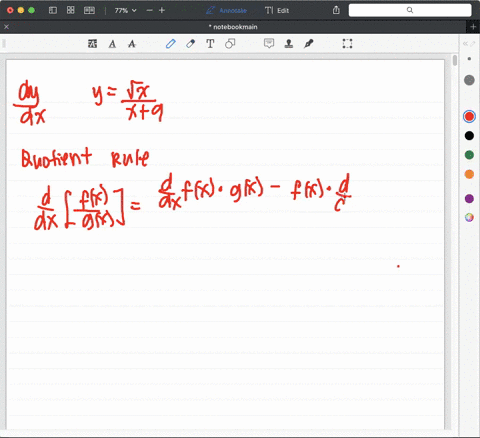 77%
Annotate
Edit
* notebookmain
dy/dx y = √x/(x+9)
Quotient Rule
d/dx [f(x)/g(x)] = d/dx f(x) · g(x) − f(x) · d/